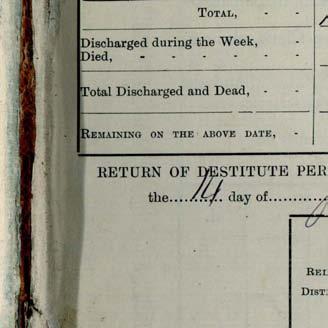 TOTAL, - -
Discharged during the Week, -
Died, - - - - -
Total Discharged and Dead, - -
REMAINING ON THE ABOVE DATE, -
RETURN OF DESTITUTE PER
the..........14.......... day of..........
REL
DIST